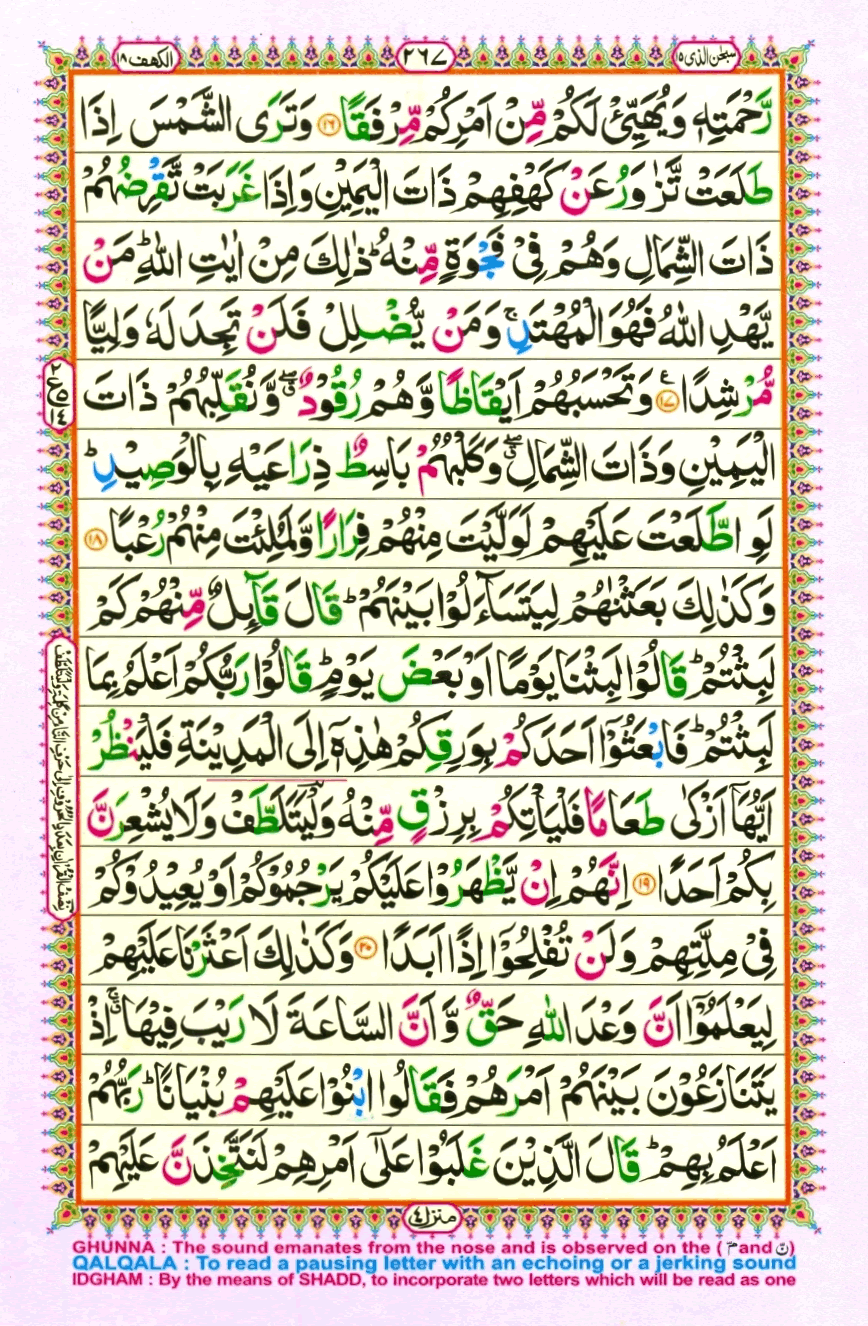 سبحن الذی ۱۵
۲۶۷
الکهف ۱۸
رَّحْمَتِهٖ وَيُهَيِّئْ لَكُمْ مِّنْ اَمْرِكُمْ مِّرْفَقًا ۝۱۶ وَتَرَى الشَّمْسَ اِذَا
طَلَعَتْ تَّزٰوَرُ عَنْ كَهْفِهِمْ ذَاتَ الْيَمِيْنِ وَاِذَا غَرَبَتْ تَّقْرِضُهُمْ
ذَاتَ الشِّمَالِ وَهُمْ فِيْ فَجْوَةٍ مِّنْهُ ؕ ذٰلِكَ مِنْ اٰيٰتِ اللّٰهِ ؕ مَنْ
يَّهْدِ اللّٰهُ فَهُوَ الْمُهْتَدِ ۚ وَمَنْ يُّضْلِلْ فَلَنْ تَجِدَ لَهٗ وَلِيًّا
مُّرْشِدًا ۝۱۷ ع وَتَحْسَبُهُمْ اَيْقَاظًا وَّهُمْ رُقُوْدٌ ۖ ق وَّنُقَلِّبُهُمْ ذَاتَ
الْيَمِيْنِ وَذَاتَ الشِّمَالِ ۖ ق وَكَلْبُهُمْ بَاسِطٌ ذِرَاعَيْهِ بِالْوَصِيْدِ ؕ
لَوِ اطَّلَعْتَ عَلَيْهِمْ لَوَلَّيْتَ مِنْهُمْ فِرَارًا وَّلَمُلِئْتَ مِنْهُمْ رُعْبًا ۝۱۸
وَكَذٰلِكَ بَعَثْنٰهُمْ لِيَتَسَآءَلُوْا بَيْنَهُمْ ؕ قَالَ قَآئِلٌ مِّنْهُمْ كَمْ
لَبِثْتُمْ ؕ قَالُوْا لَبِثْنَا يَوْمًا اَوْ بَعْضَ يَوْمٍ ؕ قَالُوْا رَبُّكُمْ اَعْلَمُ بِمَا
لَبِثْتُمْ ؕ فَابْعَثُوْٓا اَحَدَكُمْ بِوَرِقِكُمْ هٰذِهٖٓ اِلَى الْمَدِيْنَةِ فَلْيَنْظُرْ
اَيُّهَآ اَزْكٰى طَعَامًا فَلْيَاْتِكُمْ بِرِزْقٍ مِّنْهُ وَلْيَتَلَطَّفْ وَلَا يُشْعِرَنَّ
بِكُمْ اَحَدًا ۝۱۹ اِنَّهُمْ اِنْ يَّظْهَرُوْا عَلَيْكُمْ يَرْجُمُوْكُمْ اَوْ يُعِيْدُوْكُمْ
فِيْ مِلَّتِهِمْ وَلَنْ تُفْلِحُوْٓا اِذًا اَبَدًا ۝۲۰ وَكَذٰلِكَ اَعْثَرْنَا عَلَيْهِمْ
لِيَعْلَمُوْٓا اَنَّ وَعْدَ اللّٰهِ حَقٌّ وَّاَنَّ السَّاعَةَ لَا رَيْبَ فِيْهَا ۚ ق اِذْ
يَتَنَازَعُوْنَ بَيْنَهُمْ اَمْرَهُمْ فَقَالُوا ابْنُوْا عَلَيْهِمْ بُنْيَانًا ؕ رَبُّهُمْ
اَعْلَمُ بِهِمْ ؕ قَالَ الَّذِيْنَ غَلَبُوْا عَلٰٓى اَمْرِهِمْ لَنَتَّخِذَنَّ عَلَيْهِمْ
منزل ۴
GHUNNA : The sound emanates from the nose and is observed on the ( مّ and نّ )
QALQALA : To read a pausing letter with an echoing or a jerking sound
IDGHAM : By the means of SHADD, to incorporate two letters which will be read as one